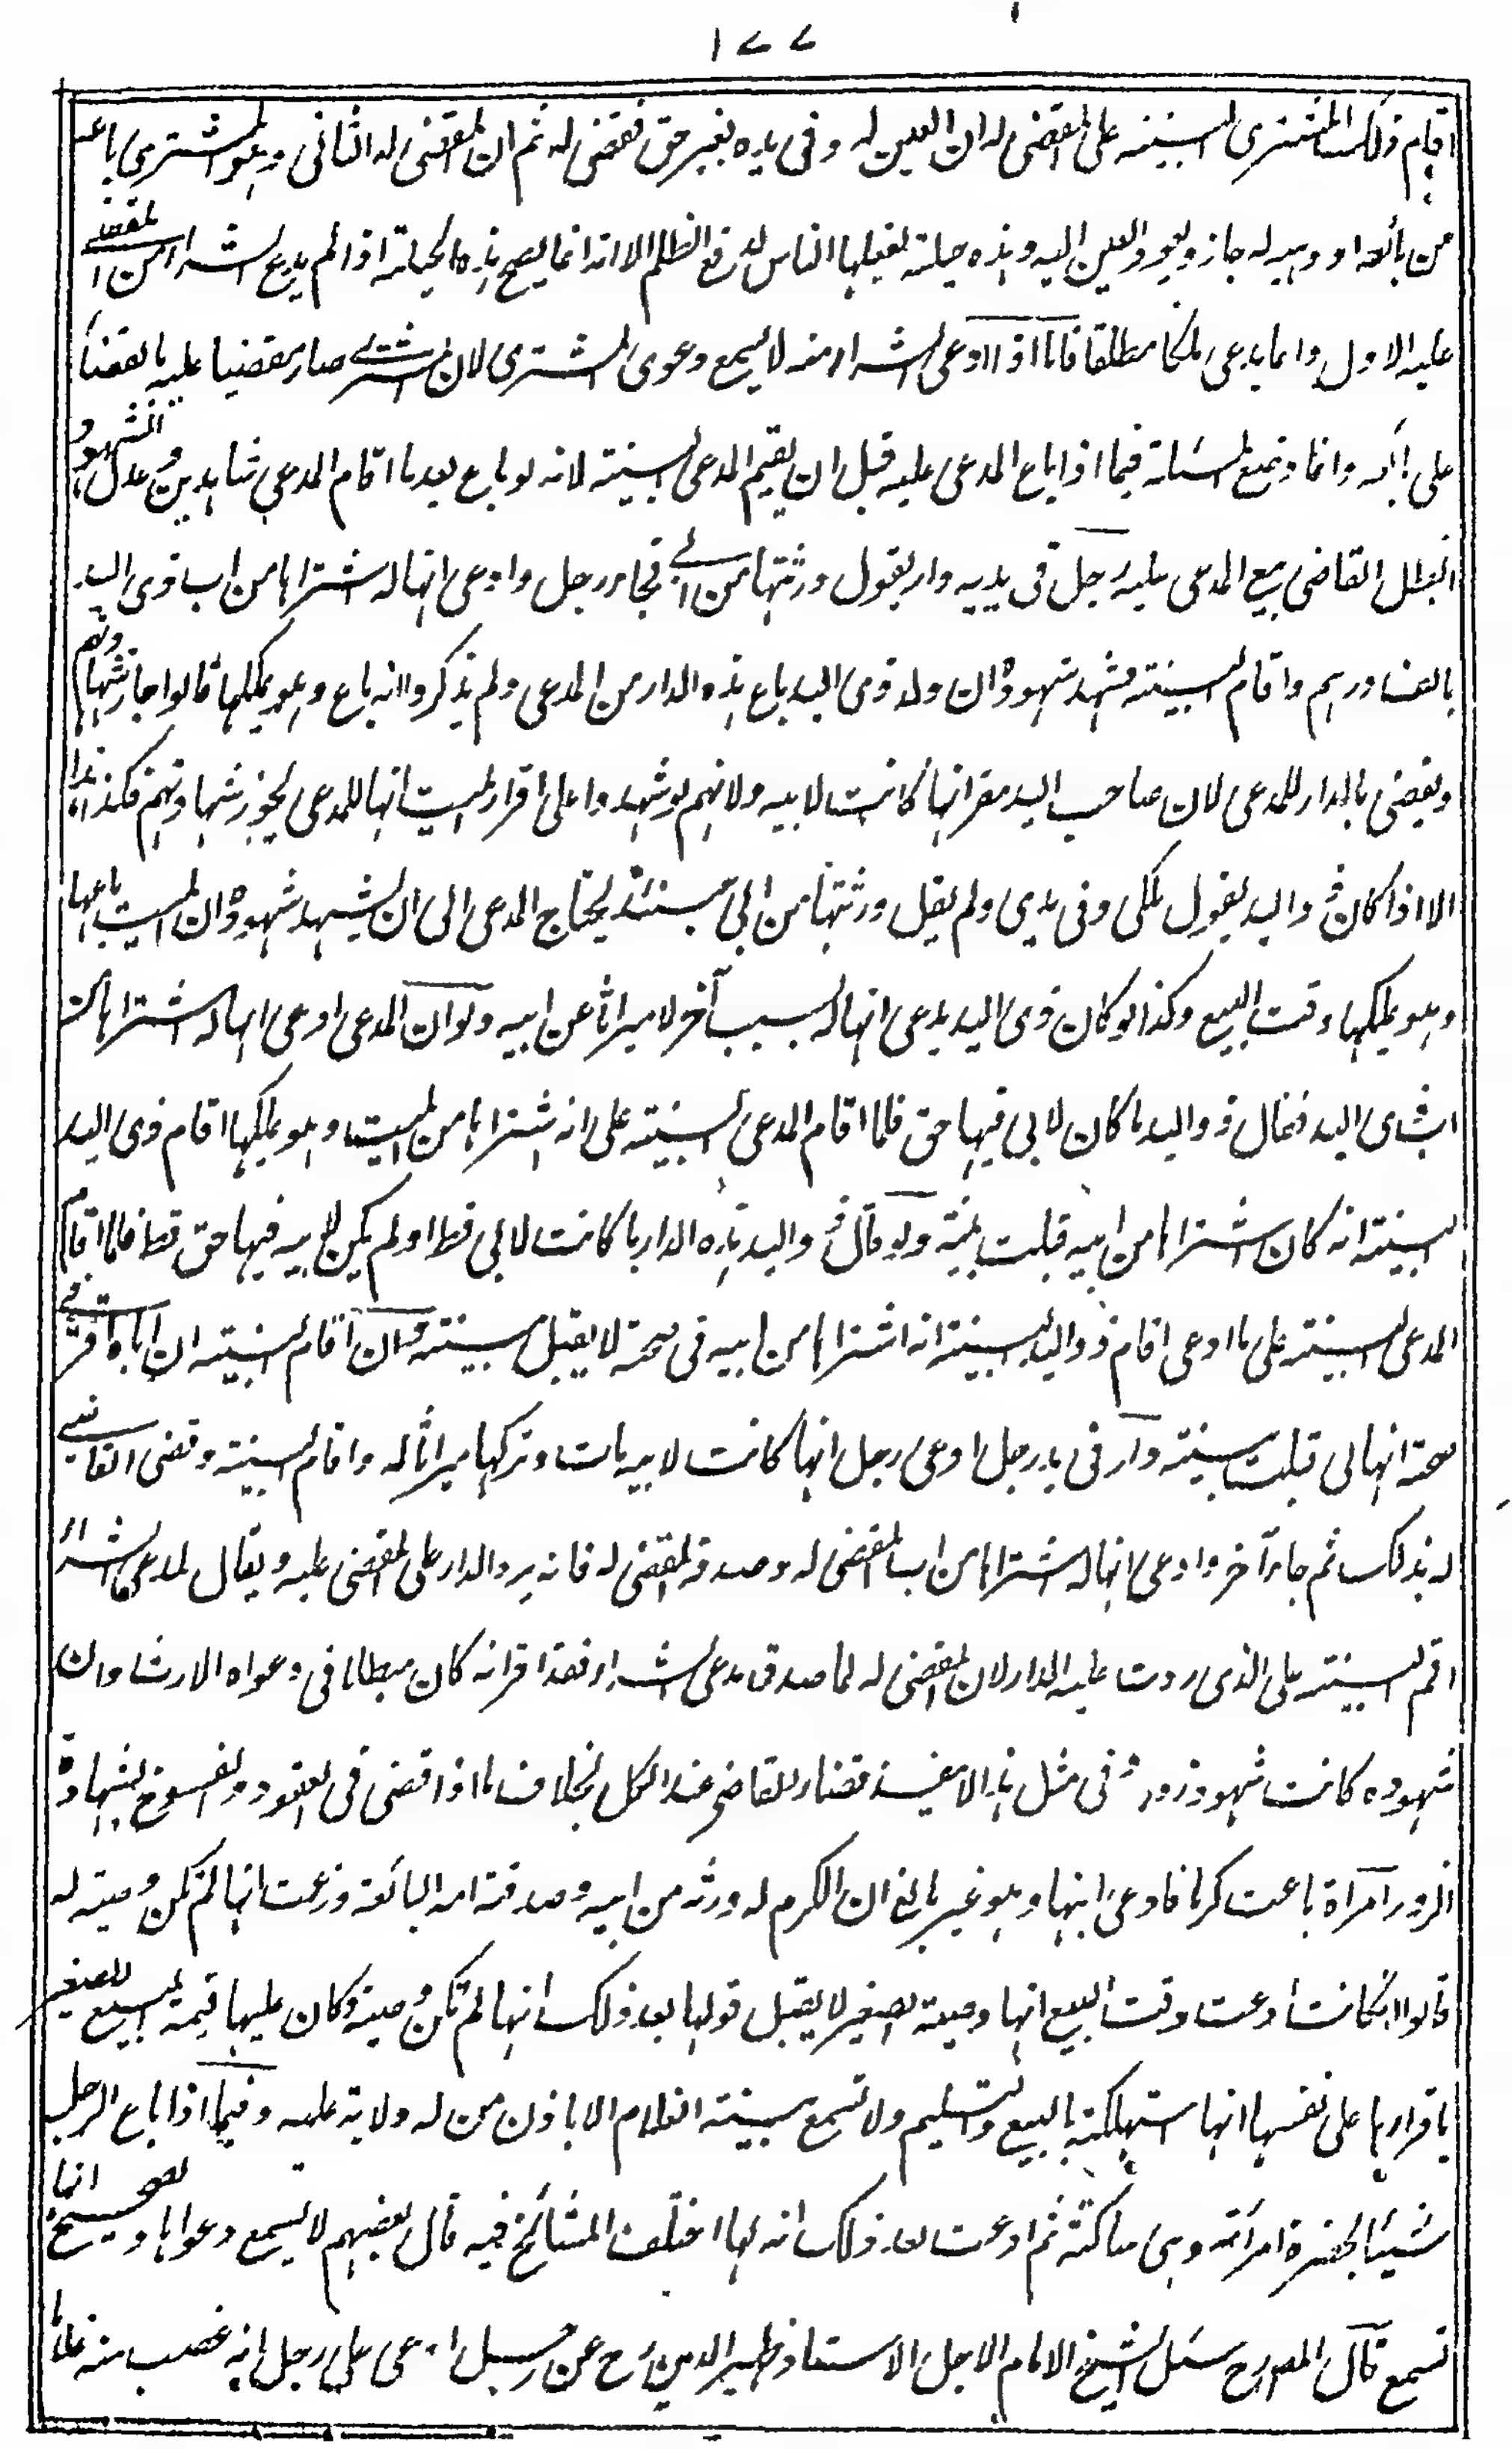 ١٧٧
اقام ذلك المشترى البينة على المقضى له ان العين له وفى يده بغير حق فقضى له ثم ان المقضى له الثانى وهو المشترى باعه
من بائعه او وهبه له جاز ويعود العين اليه وهذه حيلة يفعلها الناس لدفع الظلم الا انه انما يصح هذه الحيلة اذا لم يدع الشراء من المقضى
عليه الاول وانما يدعى ملكا مطلقا فاما اذا ادعى الشراء منه لا يسمع دعوى المشترى لان المشترى صار مقضيا عليه بالقضاء
على بائعه وانما وضع المسئلة فيما اذا باع المدعى عليه قبل ان يقيم المدعى البينة لانه لو باع بعد ما اقام المدعى شاهدين وعدل الشهود
ابطل القاضى بيع المدعى عليه رجل فى يديه دار يقول ورثتها من ابى فجاء رجل وادعى انها له اشتراها من اب ذى اليد
بالف درهم واقام البينة فشهد شهوده ان والد ذى اليد باع هذه الدار من المدعى ولم يذكروا انه باع وهو يملكها قالوا جاز شهادتهم
ويقضى بالدار للمدعى لان صاحب اليد مقر انها كانت لابيه ولانهم لو شهدوا على اقرار الميت انها للمدعى يجوز شهادتهم فكذا هذا
الا اذا كان ذو اليد يقول ملكى وفى يدى ولم يقل ورثتها من ابى حينئذ يحتاج المدعى الى ان يشهد شهوده ان الميت باعها
وهو يملكها وقت البيع وكذا لو كان ذى اليد يدعى انها له بسبب آخر لا ميراثا عن ابيه ولو ان المدعى ادعى انها له اشتراها من
اب ذى اليد فقال ذو اليد ما كان لابى فيها حق فلما اقام المدعى البينة على انه اشتراها من الميت وهو يملكها اقام ذى اليد
البينة انه كان اشتراها من ابيه قبلت بينته ولو قال ذو اليد هذه الدار ما كانت لابى قط او لم يكن لابيه فيها حق قط فلما اقام
المدعى البينة على ما ادعى اقام ذو اليد البينة انه اشتراها من ابيه فى صحته لا يقبل بينته وان اقام البينة ان اباه اقر فى
صحته انها لى قبلت بينته دار فى يد رجل ادعى رجل انها كانت لابيه مات وتركها ميراثا له واقام البينة وقضى القاضى
له بذلك ثم جاء آخر وادعى انها له اشتراها من اب المقضى له وصدقه المقضى له فانه يرد الدار على المقضى عليه ويقال لمدعى الشراء
اقم البينة على الذى ردت عليه الدار لان المقضى له لما صدق مدعى الشراء فقد اقر انه كان مبطلا فى دعواه الارث وان
شهوده كانت شهود زور وفى مثل هذا لا ينفذ قضاء القاضى عند الكل بخلاف ما اذا قضى فى العقود والفسوخ بشهادة
الزور امرأة باعت كرما فادعى ابنها وهو غير بالغ ان الكرم له ورثه من ابيه وصدقته امه البائعة وزعمت انها لم تكن وصية له
قالوا ان كانت ادعت وقت البيع انها وصية الصغير لا يقبل قولها بعد ذلك انها لم تكن وصية وكان عليها قيمة المبيع للصغير
باقرارها على نفسها انها استهلكته بالبيع والتسليم ولا تسمع بينة الغلام الا باذن من له ولاية عليه وفيما اذا باع الرجل
شيئا بحضرة امرأته وهى ساكتة ثم ادعت بعد ذلك انه لها اختلف المشائخ فيه قال بعضهم لا يسمع دعواها والصحيح انها
تسمع قال المص رح سئل الشيخ الامام الاجل الاستاذ ظهير الدين رح عن رجل ادعى على رجل انه غصب منه غلاما